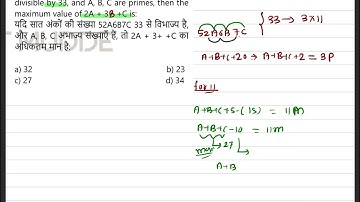 divisible by 33, and A, B, C are primes, then the
maximum value of 2A + 3B+C is:
यदि सात अंकों की संख्या 52A6B7C 33 से विभाज्य है,
और A, B, C अभाज्य संख्याएँ हैं, तो 2A + 3+ +C का
अधिकतम मान है:
a) 32 b) 23
c) 27 d) 34
33 → 3×11
52A6B7C
A+B+C+20 → A+B+C+2 = 3P
for 11
A+B+C+5-(15) = 11m
A+B+C-10 = 11m
max → 27
A+B